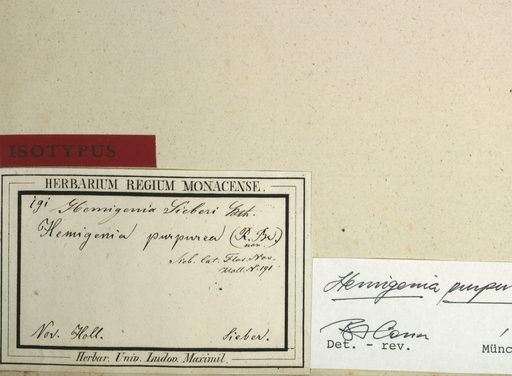 ISOTYPUS
HERBARIUM REGIUM MONACENSE.
191 Hemigenia Sieberi Bth.
Hemigenia purpurea (R. Br.)
non.
Sieb. Cat. Flor. Nov.
Holl. N. 191
Nov. Holl. Sieber.
Herbar. Univ. Ludov. Maximil.
Hemigenia purpu
Det. - rev.
Münc